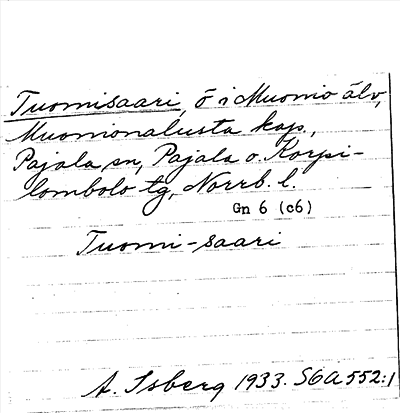 Tuomisaari, ö i Muonio älv,
Muonionalusta kap.,
Pajala sn, Pajala o. Korpi-
lombolo tg, Norrb. l.
Gn 6 (c6)
Tuomi-saari
A. Isberg 1933. SGA 552:1